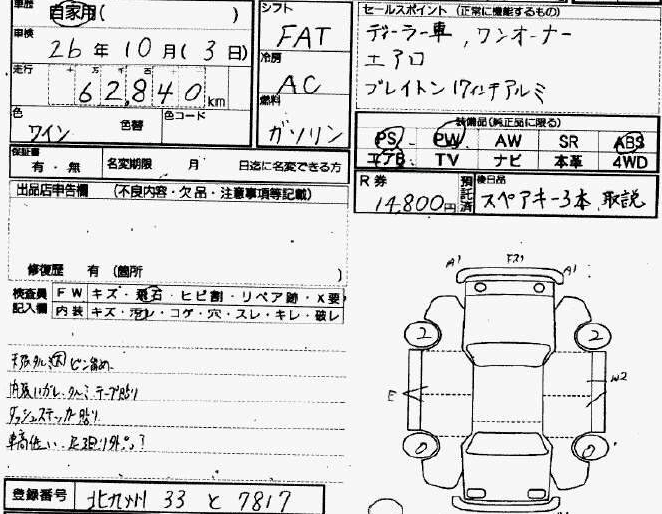 車歴 自家用( )
車検 26年10月(3日)
走行 十 万 千 百
62,840 km
色 ワイン 色替 色コード
シフト FAT
冷房 AC
燃料 ガソリン
セールスポイント (正常に機能するもの)
ディーラー車, ワンオーナー
エアロ
ブレイトン17インチアルミ
装備品(純正品に限る)
PS PW AW SR ABS
エアB TV ナビ 本革 4WD
保証書 有・無 名変期限 月 日迄に名変できる方
R券 14,800円 預託済
後日品 スペアキー3本, 取説
出品店申告欄 (不良内容・欠品・注意事項等記載)
修復歴 有 (箇所 )
検査員記入欄
FW キズ・飛石・ヒビ割・リペア跡・X要
内装 キズ・汚レ・コゲ・穴・スレ・キレ・破レ
天張タルミ ピン留め
内張いガレ、タルミ テープ貼り
ダッシュステッカー貼り
車高低い、足廻り外品?
登録番号 北九州 33 と 7817
A1 A1
2 2
E W2
0 0